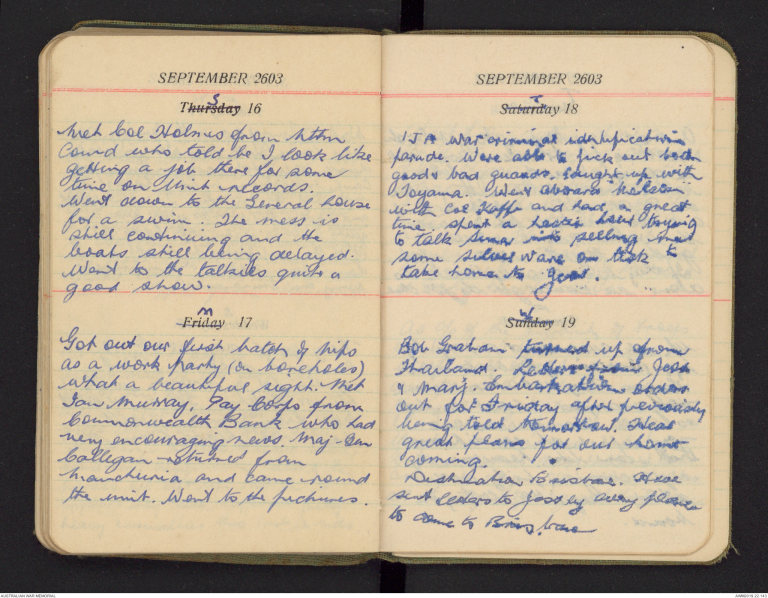 SEPTEMBER 2603
S
Thursday 16
Met Col Holmes from Mttm
Cound who told be I look like
getting a job there for some
time on Unit records.
Went down to the General house
for a swim. The mess is
still continuing and the
boats still being delayed.
Went to the talkies quite a
good show.
M
Friday 17
Got out our first batch of Nips
as a work party (on boreholes)
what a beautiful sight. Met
Ian Murray, Pay Corps from
Commonwealth Bank who had
very encouraging news. Maj-Gen
Callegan returned from
Manchuria and came round
the unit. Went to the pictures.
SEPTEMBER 2603
T
Saturday 18
IJA War criminal identification
parade. Were able to pick out both
good & bad guards. Caught up with
Toyama. Went aboard
with Col Kappe and had a great
time, spent a hectic hour trying
to talk into selling me
some silver ware on tick to
take home to
W
Sunday 19
Bob Graham turned up from
Thailand. Letters from Joss
& Marj. Embarkation orders
out for Friday after previously
being told tomorrow. Hear
great plans for our home
coming.
Destination Brisbane. Have
sent letters to Joss by every plane
to come to Brisbane
AUSTRALIAN WAR MEMORIAL